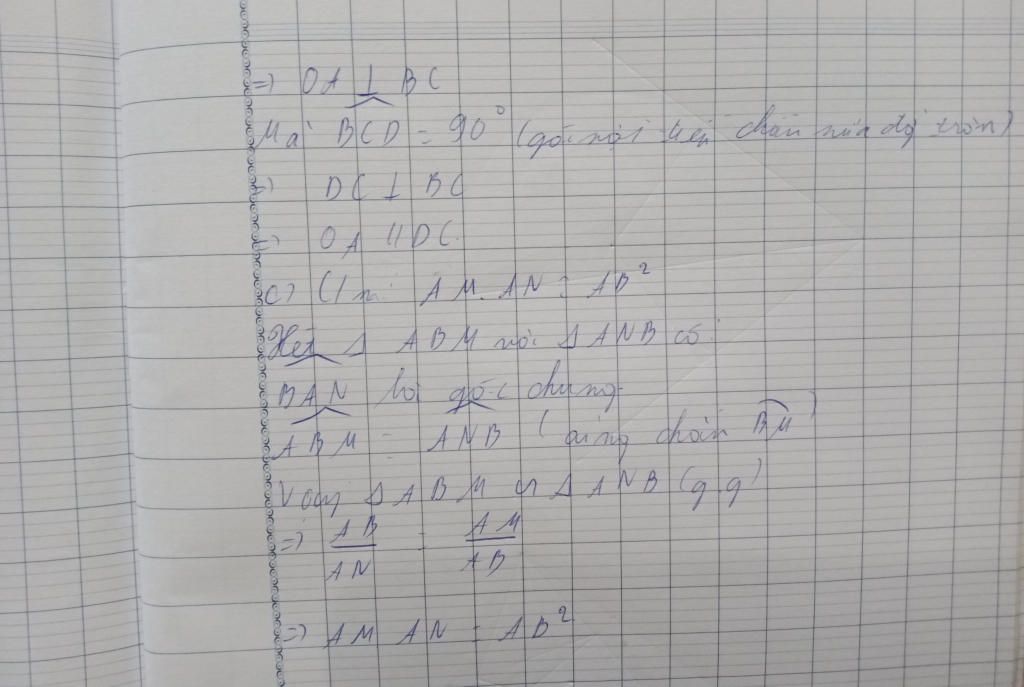 =) OA ⊥ BC
Mà BCD = 90° (góc nội tiếp chắn nửa đg tròn)
=) DC ⊥ BC
=) OA // DC.
c) C/m: AM. AN = AB²
Xét Δ ABM với Δ ANB có:
BAN là góc chung
ABM = ANB (cùng chắn BM)
Vậy Δ ABM ∽ Δ ANB (g.g)
=) AB/AN = AM/AB
=) AM AN = AB²